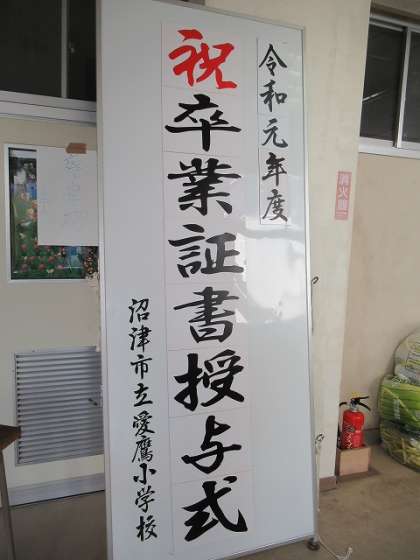 令和元年度
祝卒業証書授与式
沼津市立愛鷹小学校
消火器